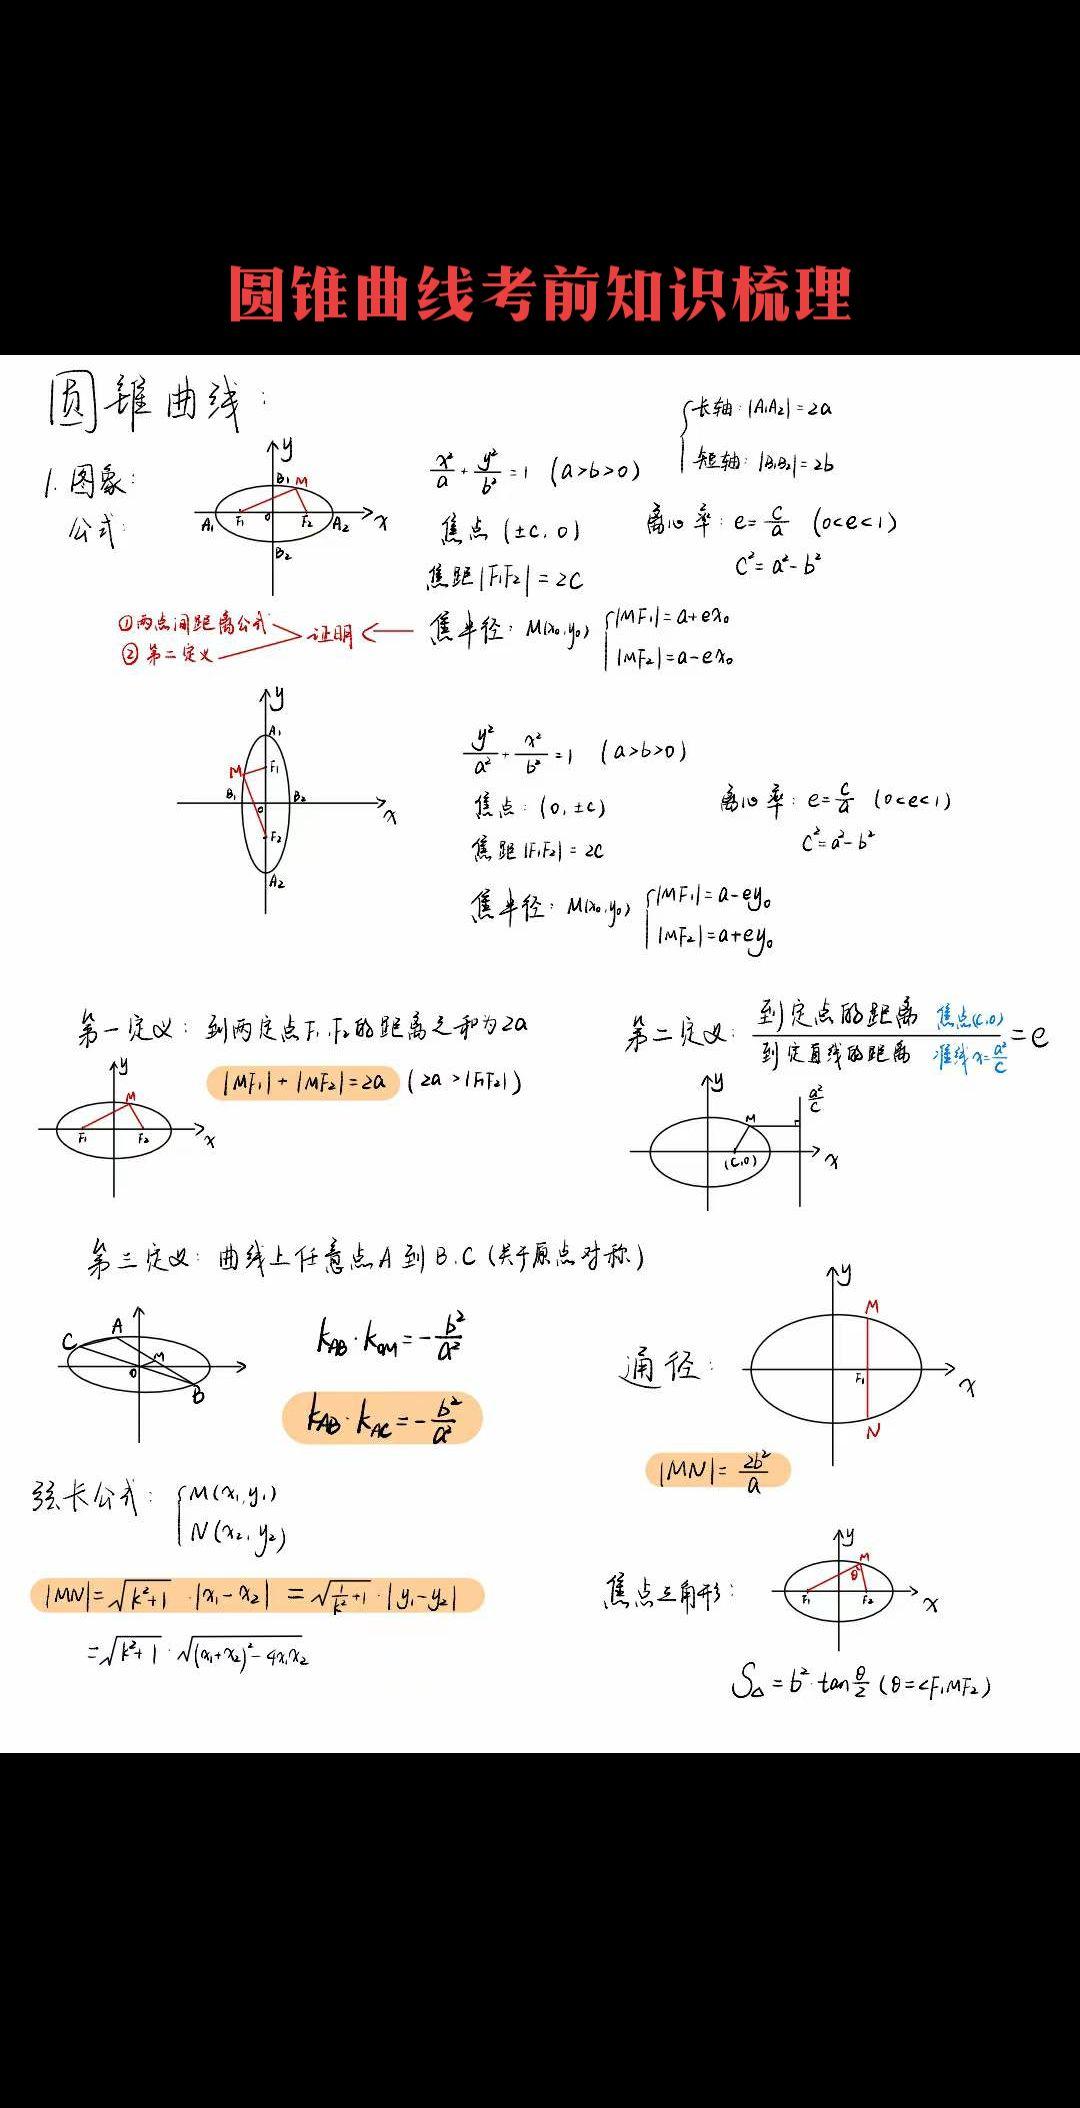 圆锥曲线考前知识梳理
圆锥曲线:
1. 图象:
公式:
y
B₁ M
A₁ F₁ 0 F₂ A₂ x
B₂
x²/a + y²/b² = 1 (a>b>0)
长轴: |A₁A₂|=2a
短轴: |B₁B₂|=2b
焦点 (±c, 0)
离心率: e=c/a (0<e<1)
c²=a²-b²
焦距|F₁F₂|=2c
①两点间距离公式
②第二定义
证明
焦半径: M(x₀,y₀) |MF₁|=a+ex₀
|MF₂|=a-ex₀
y
A₁
M F₁
B₁ 0 B₂ x
F₂
A₂
y²/a² + x²/b² = 1 (a>b>0)
焦点: (0, ±c)
离心率: e=c/a (0<e<1)
c²=a²-b²
焦距|F₁F₂|=2c
焦半径: M(x₀,y₀) |MF₁|=a-ey₀
|MF₂|=a+ey₀
第一定义: 到两定点F₁,F₂的距离之和为2a
|MF₁|+|MF₂|=2a (2a>|F₁F₂|)
y
M
F₁ F₂ x
第二定义: 到定点的距离 焦点(c,0) / 到定直线的距离 准线x=a²/c = e
y
M a²/c
(c,0) x
第三定义: 曲线上任意点A到B.C (关于原点对称)
C A
0 M
B
k_AB·k_OM=-b²/a²
k_AB·k_AC=-b²/a²
通径:
y
M
F₁ x
N
|MN|=2b²/a
弦长公式: M(x₁,y₁)
N(x₂,y₂)
|MN|=√(k²+1)·|x₁-x₂| =√(1/k²+1)·|y₁-y₂|
=√(k²+1)·√((x₁+x₂)²-4x₁x₂)
焦点三角形:
y
M
θ
F₁ F₂ x
S△=b²·tan θ/2 (θ=∠F₁MF₂)